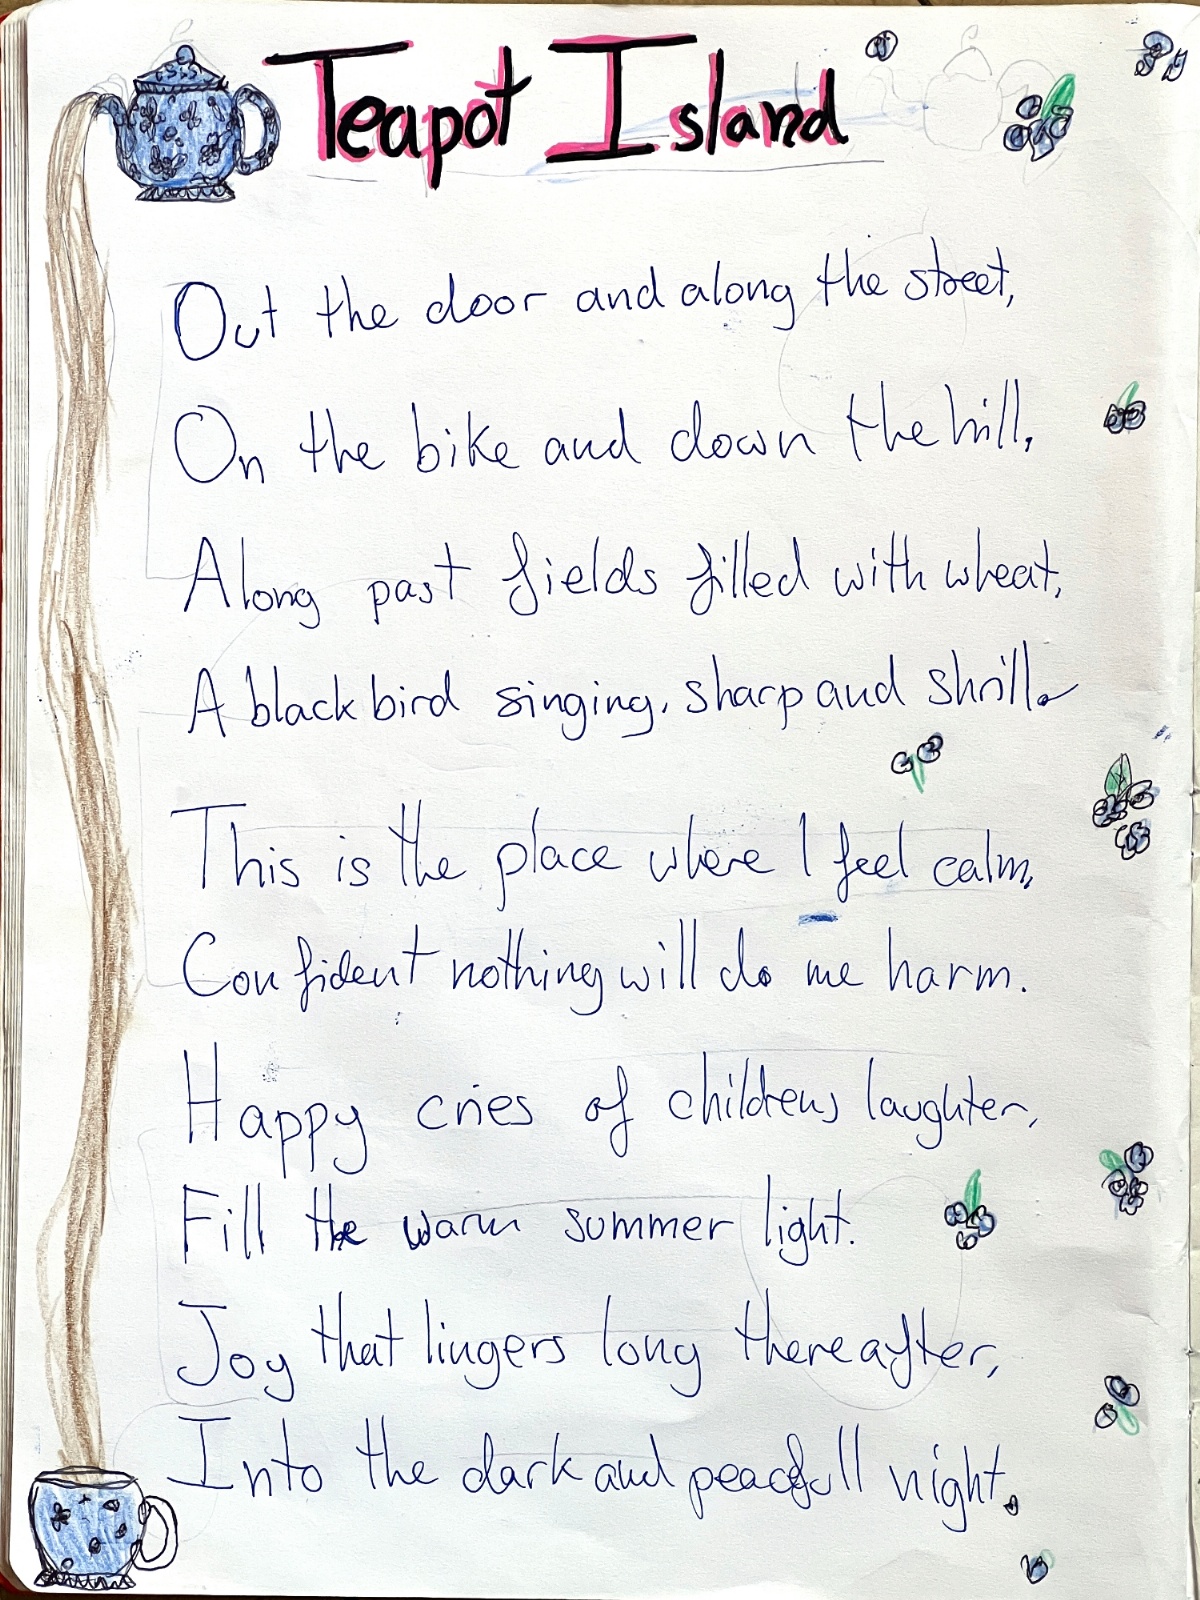 Teapot Island
Out the door and along the street,
On the bike and down the hill,
Along past fields filled with wheat,
A blackbird singing, sharp and shrill.
This is the place where I feel calm,
Confident nothing will do me harm.
Happy cries of childrens laughter,
Fill the warm summer light.
Joy that lingers long thereafter,
Into the dark and peacefull night.